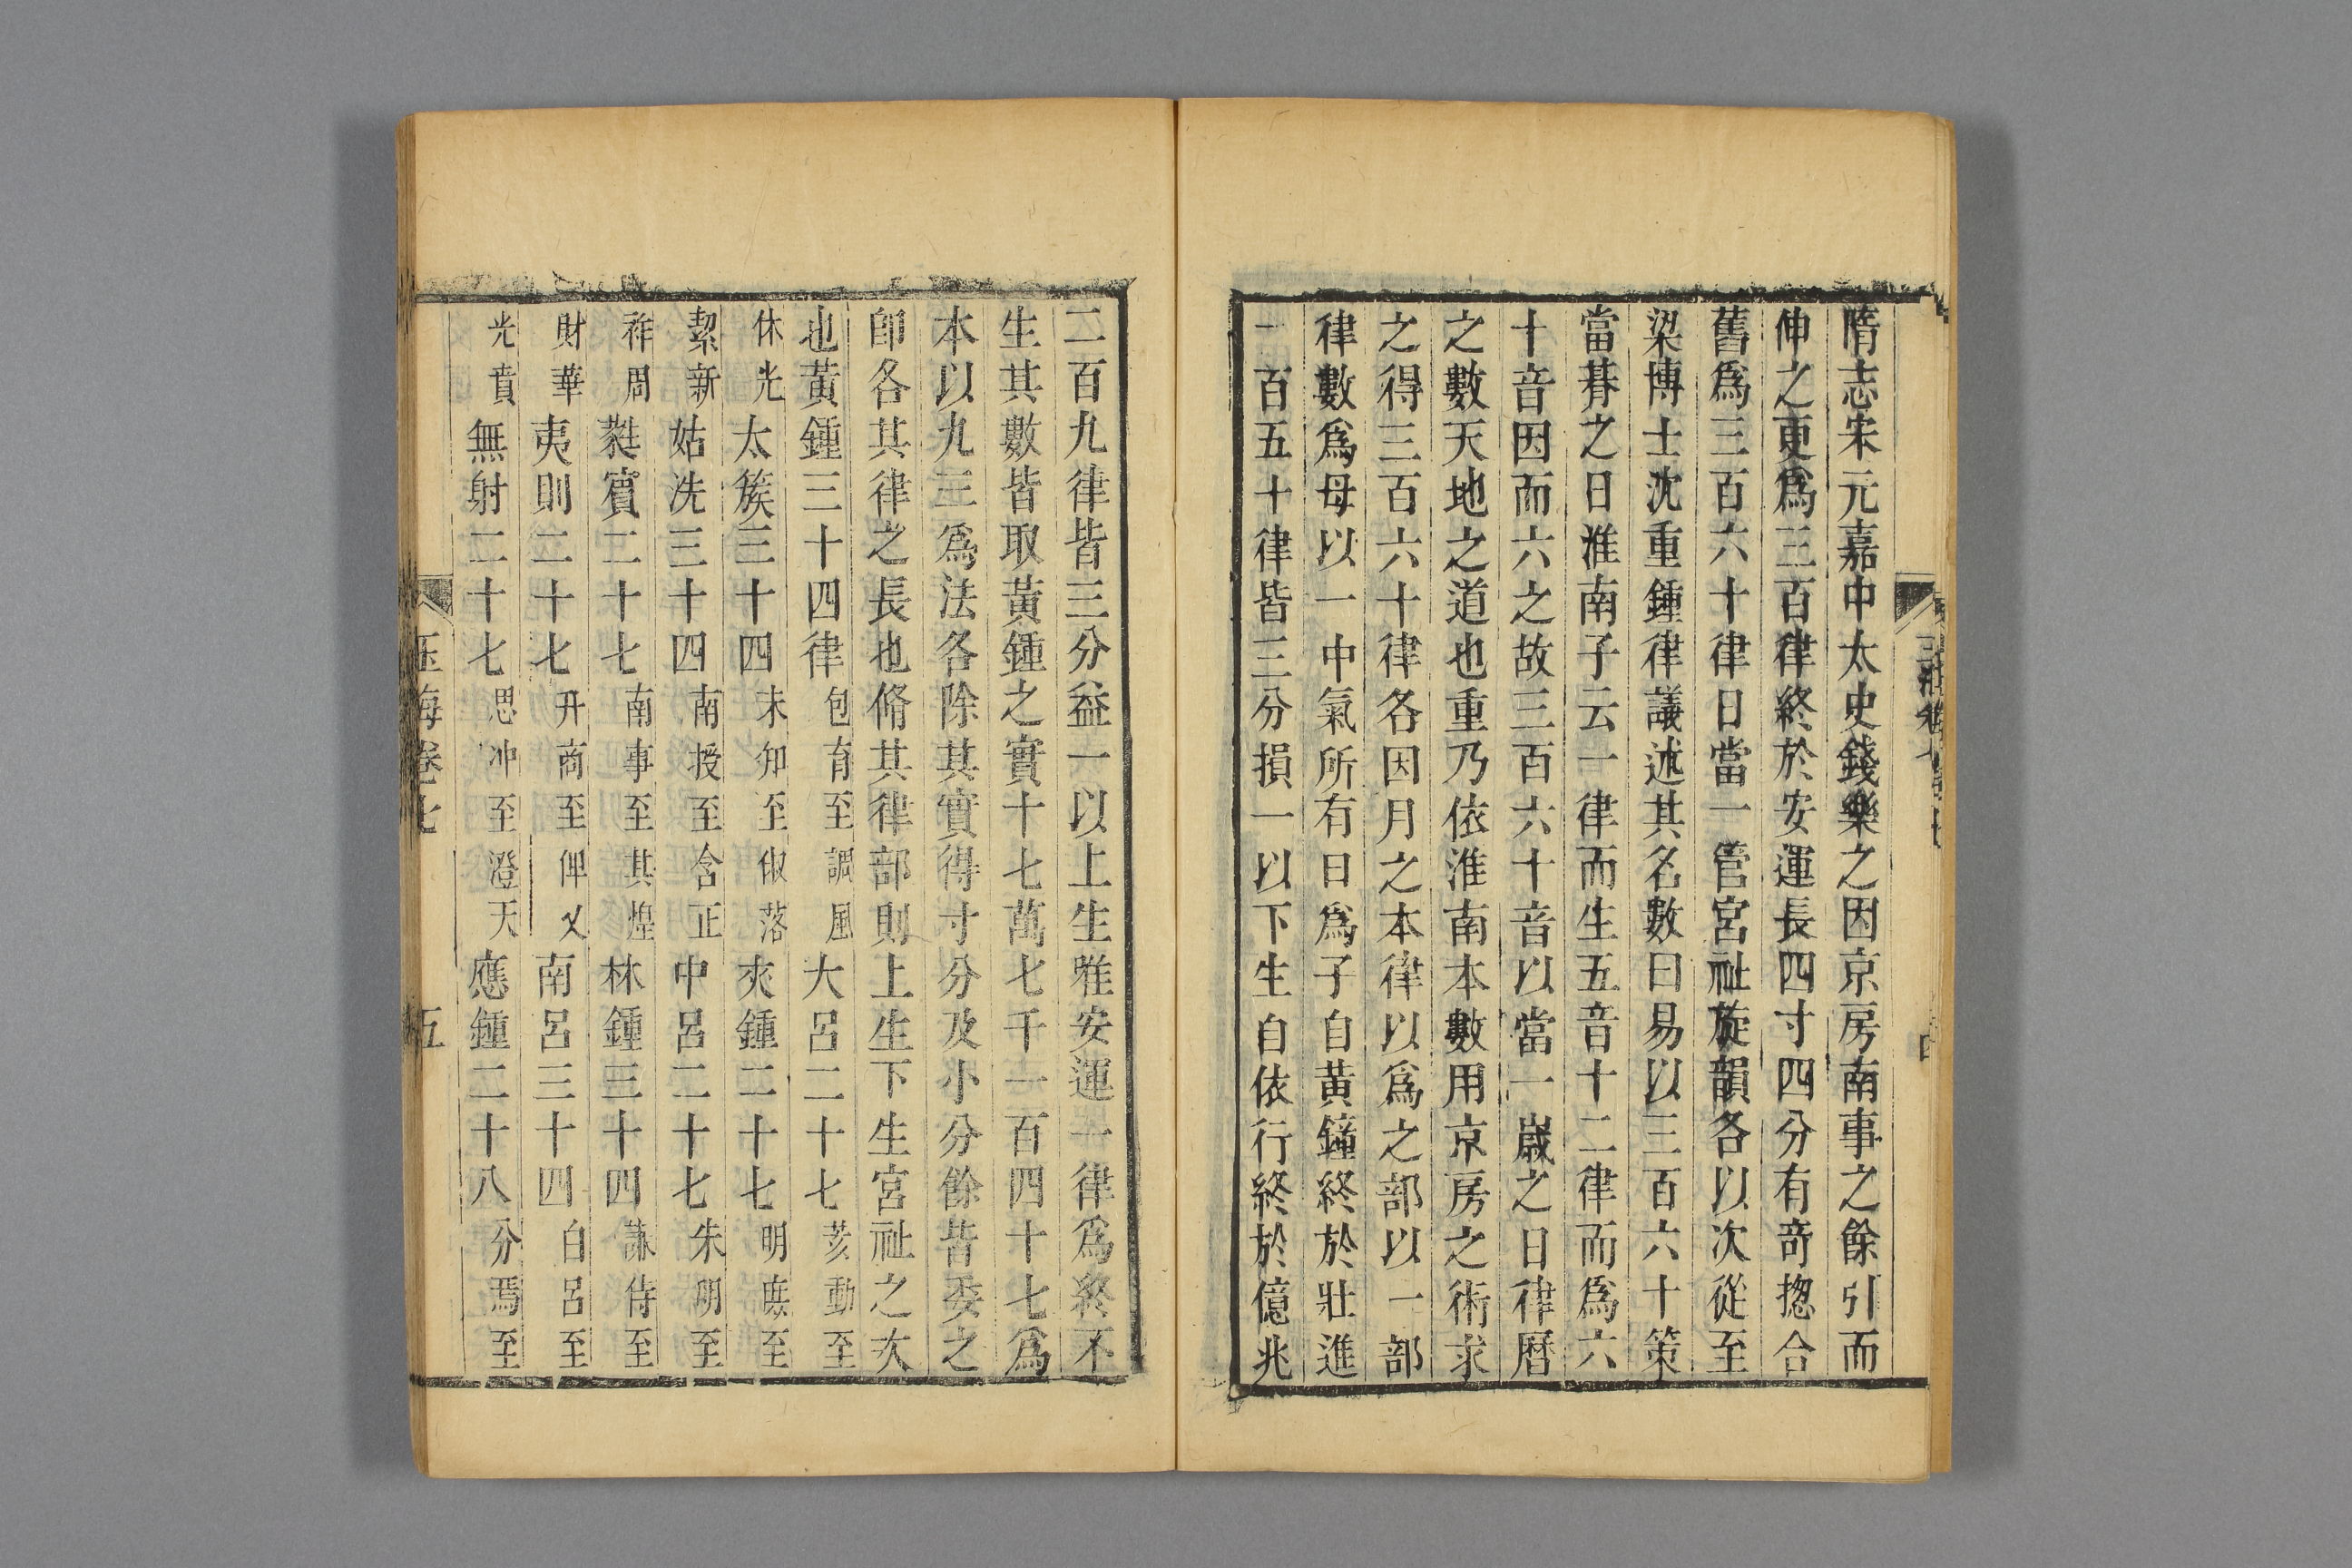 隋志宋元嘉中太史錢樂之因京房南事之餘引而
伸之更爲三百律終於安運長四寸四分有竒揔合
舊爲三百六十律日當一管宮祉旋韻各以次從至
梁博士沈重鍾律議述其名數曰易以三百六十策
當朞之日淮南子云一律而生五音十二律而爲六
十音因而六之故三百六十音以當一歳之日律暦
之數天地之道也重乃依淮南本數用京房之術求
之得三百六十律各因月之本律以爲之部以一部
律數爲母以一中氣所有日爲子自黃鐘終於壯進
一百五十律皆三分損一以下生自依行終於億兆
二百九律皆三分益一以上生唯安運一律爲終不
生其數皆取黃鍾之實十七萬七千一百四十七爲
本以九三爲法各除其實得寸分及小分餘皆委之
卽各其律之長也脩其律部則上生下生宮祉之次
也黃鍾三十四律包育至調風大呂二十七荄動至
休光太簇三十四未知至俶落夾鍾二十七明庶至
絜新姑洗三十四南授至含正中呂二十七朱明至
祚周蕤賓二十七南事至其煌林鍾三十四謙侍至
財華夷則二十七升商至俾乂南呂三十四白呂至
光賁無射二十七思冲至澄天應鍾二十八分焉至
玉海卷七
五